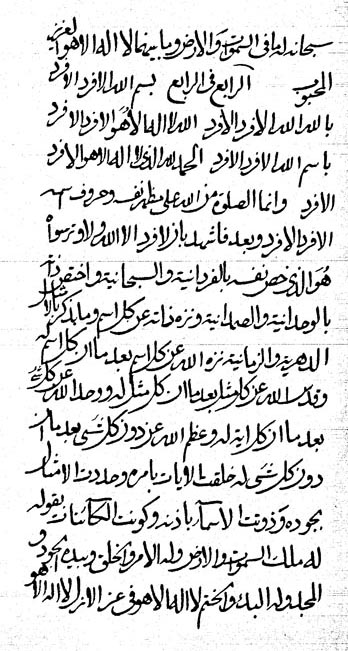 سبحانه له ما فی السموات والارض وما بینهما لا اله الا هو العزیز
المحبوب الرابع فی الرابع بسم الله الافرد الافرد
بالله الله الافرد الافرد الله لا اله الا هو الافرد الافرد
باسم الله الافرد الافرد الحمد لله الذی لا اله الا هو الافرد
الافرد وانما الصلوة من الله علی مظهر نفسه وحروف
الافرد الافرد وبعد فاشهد بان لافرد الا الله ولا وتر سواه
هو الذی خص نفسه بالفردانیة والسبحانیة واختص ذاته
بالوحدانیة والصمدانیة ونزه ذاته عن کل اسم وما یذکر
الدهریة والازمانیة نزه الله عن کل اسم بعد ما ان کل اسم له
وقدس الله عن کل مثل بعد ما ان کل مثل له ووحد الله عن کل
بعد ما ان کل ایة له وعظم الله عن دون کل شیء بعد ما ان
دون کل شیء له خلقت الایات بامره وحددت الامثال
بجوده وذوتت الاسماء باذنه وکونت الکائنات بقوله
له ملک السموات والارض وله الامر والخلق وبیده الجود و
المجد وله البدء والختم لا اله الا هو فی عز الازل لا اله الا هو